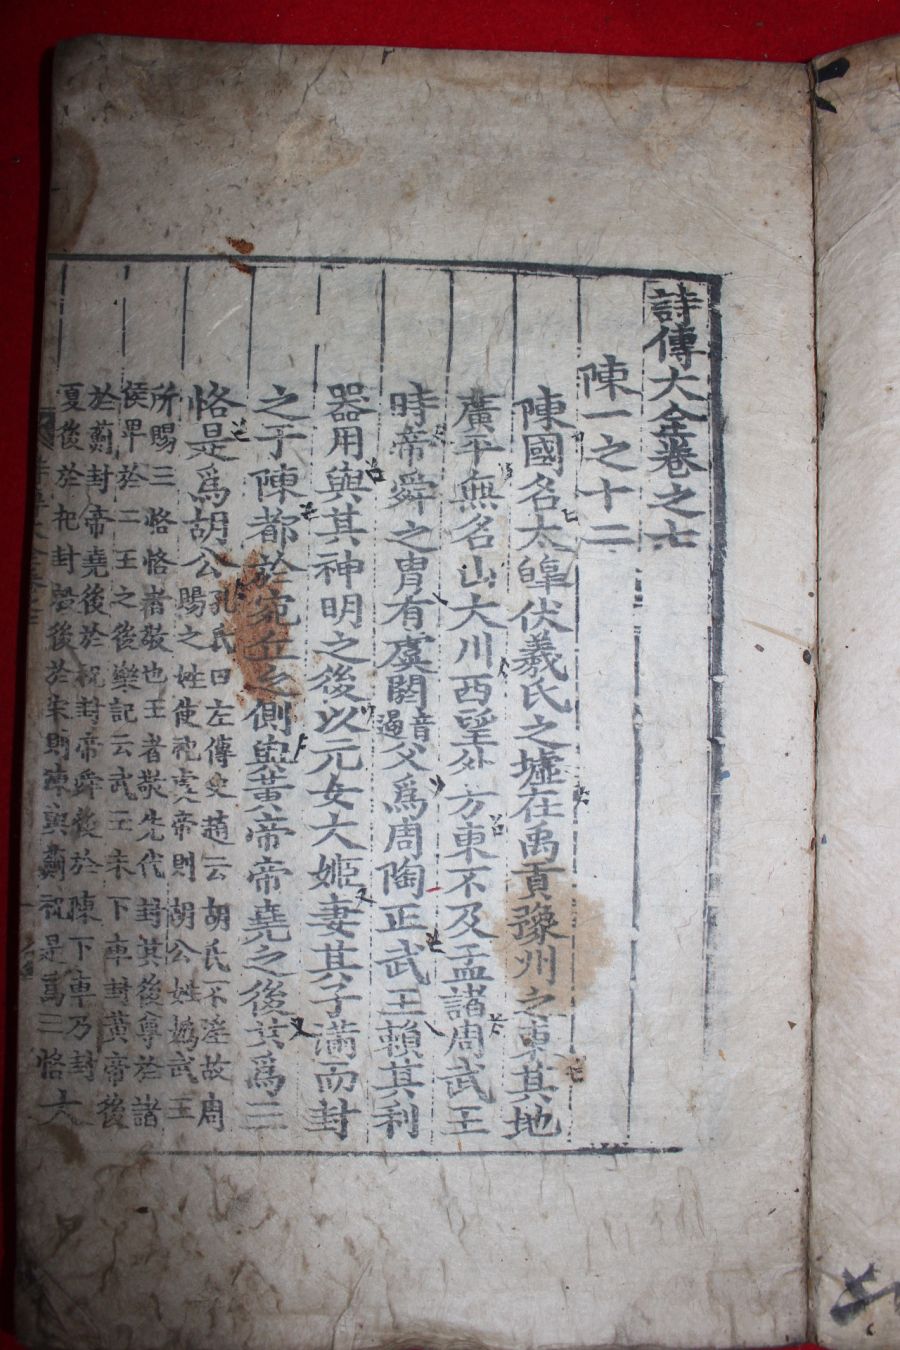 詩傳大全卷之七
陳一之十二
陳國名太皥伏羲氏之墟在禹貢豫州之東其地
廣平無名山大川西望外方東不及孟諸周武王
時帝舜之胄有虞閼音遏父爲周陶正武王賴其利
器用與其神明之後以元女大姬妻其子滿而封
之于陳都於宛丘之側與黃帝帝堯之後共爲三
恪是爲胡公孔氏曰左傳史趙云胡氏不淫故周
賜之姓使祀虞帝則胡公姓嬀武王
所賜三恪恪者敬也王者敬先代封其後尊於諸
侯卑於二王之後樂記云武王未下車封黃帝後
於薊封帝堯後於祝封帝舜後於陳下車乃封
夏後於杞封殷後於宋則陳與薊祝是爲三恪大